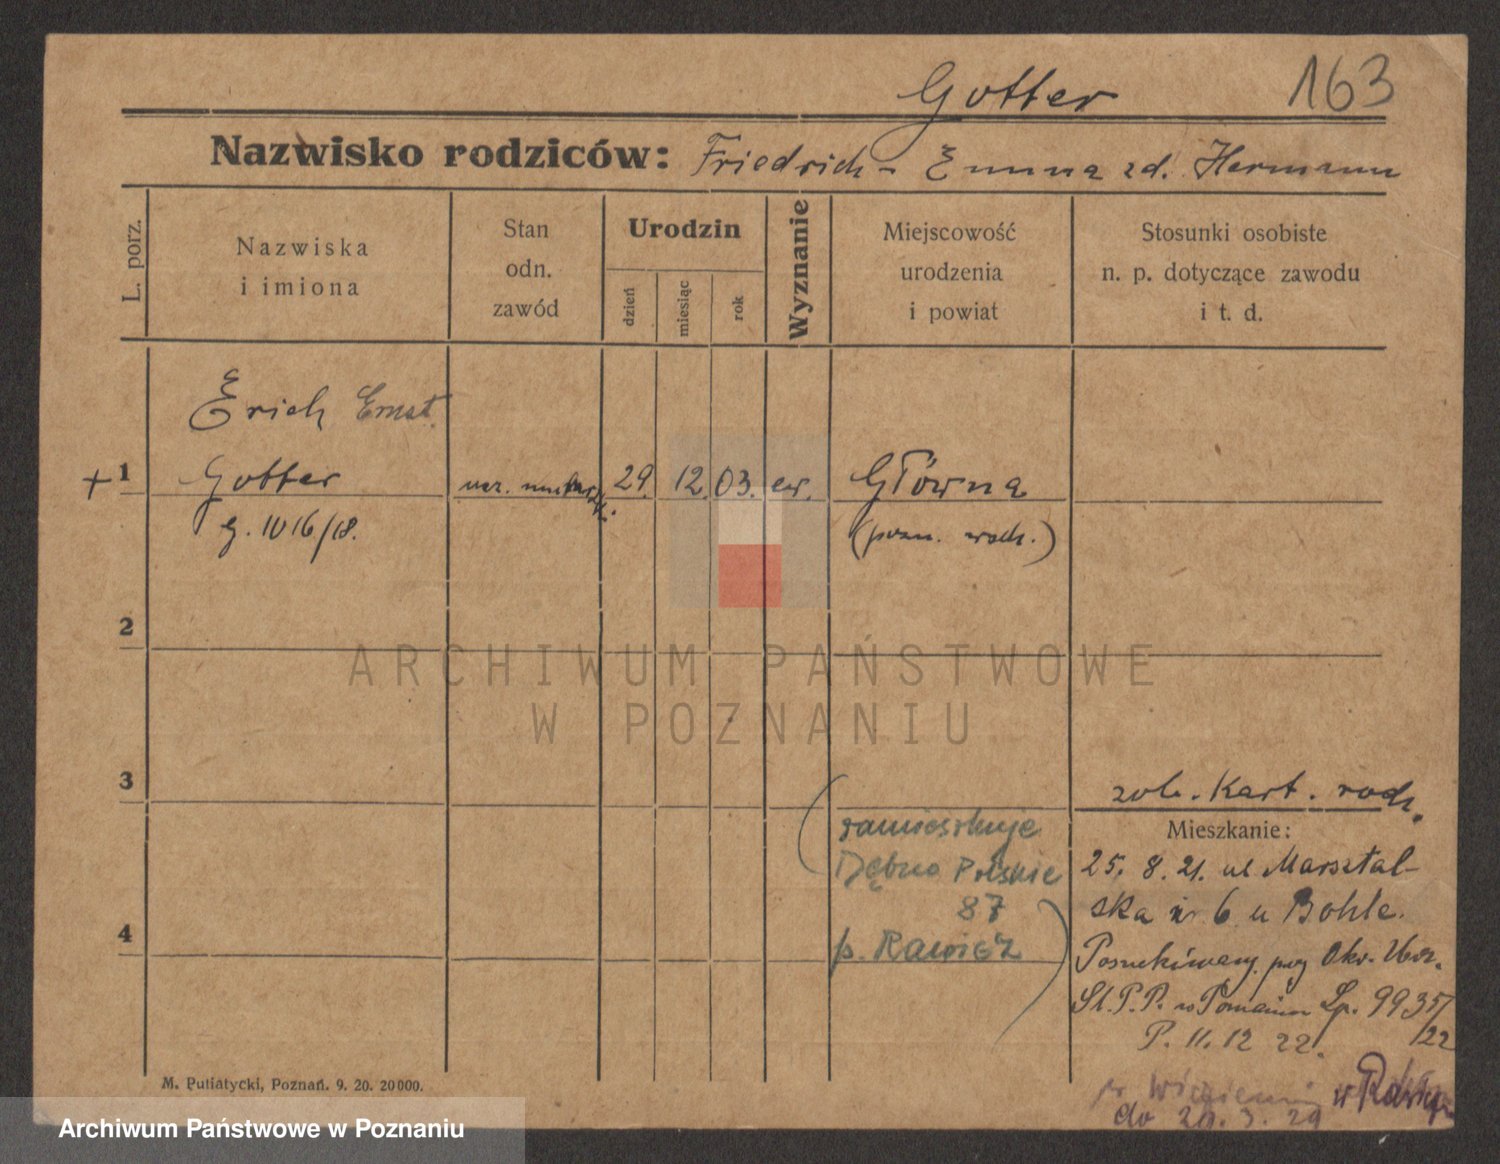 Gotter 163
Nazwisko rodziców: Friedrich - Emma zd. Hermann
L. porz.
Nazwiska
i imiona
Stan
odn.
zawód
Urodzin
dzień
miesiąc
rok
Wyznanie
Miejscowość
urodzenia
i powiat
Stosunki osobiste
n. p. dotyczące zawodu
i t. d.
Erich Ernst
+ 1 Gotter ucz. 29. 12. 03. ew. Główna
g. 1016/18. (pozn. wsch.)
2
3
zob. Kart. rodz.
Mieszkanie:
zamieszkuje
Dębno Polskie
87
p. Rawicz
25. 8. 21. ul Marsztal-
ska nr 6 u Bohle.
4
Poszukiwany przez Okr. Urz.
Śl. P.P. w Poznaniu Lp. 9935/
/22
P. 11. 12 22.
w więzieniu w
do 29. 3. 29
M. Putiatycki, Poznań. 9. 20. 20000.
ARCHIWUM PAŃSTWOWE
W POZNANIU
Archiwum Państwowe w Poznaniu